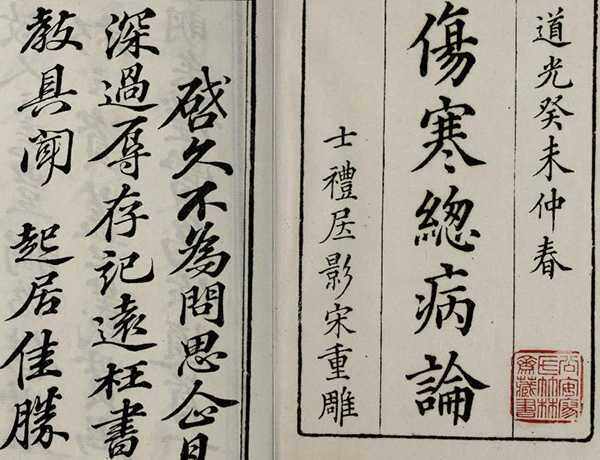 道光癸未仲春
傷寒緫病論
士禮居影宋重雕
啓久不為問思企
深過辱存記遠枉書
教具聞 起居佳勝